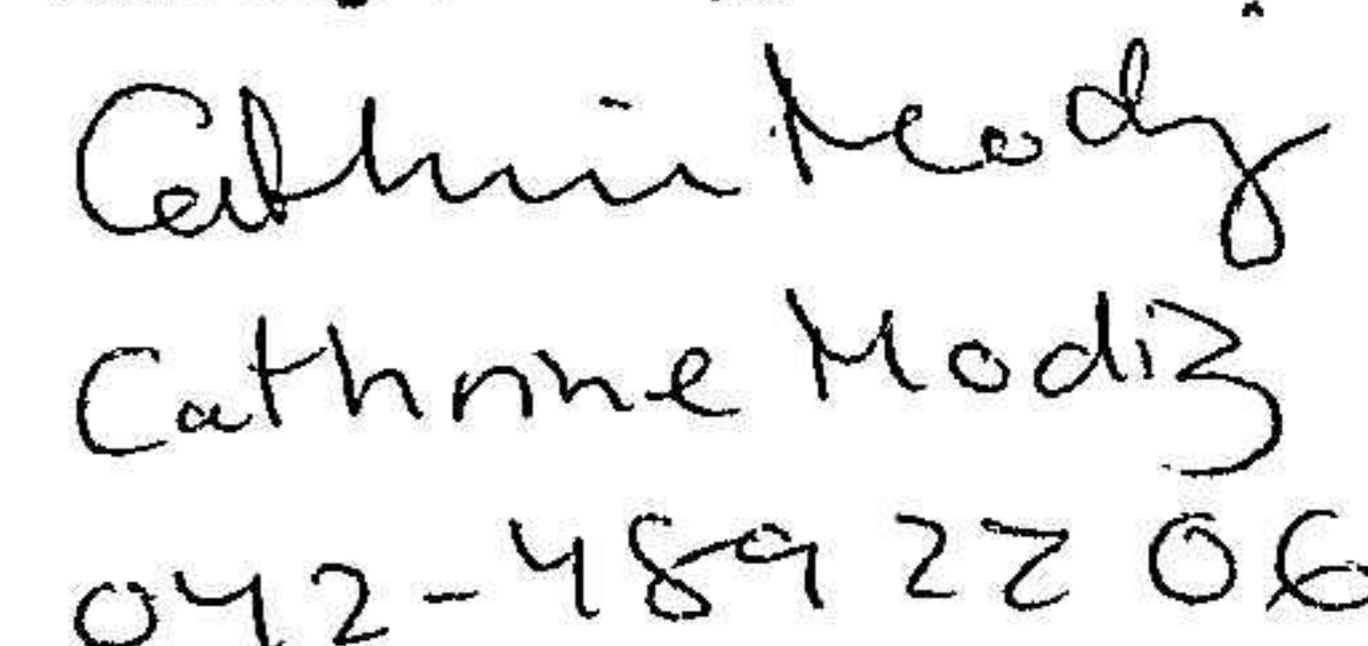 Cathrin Mody
Cathrine Modiz
042-489 22 06